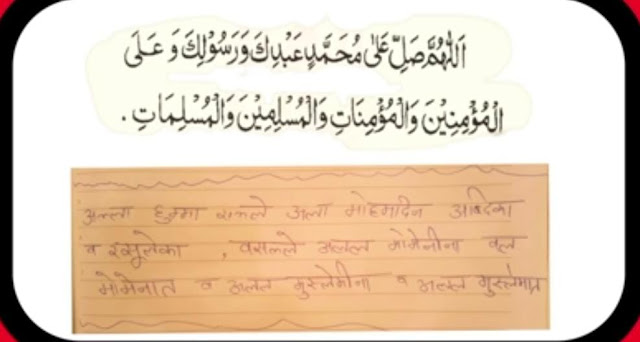 اَللّٰهُمَّ صَلِّ عَلٰى مُحَمَّدٍ عَبْدِكَ وَرَسُوْلِكَ وَ عَلَى
الْمُؤْمِنِيْنَ وَالْمُؤْمِنَاتِ وَالْمُسْلِمِيْنَ وَالْمُسْلِمَاتِ .
अल्ला हुम्मा सल्ले अला मोहमदिन अब्दिका
व रसूलेका , वसल्ले अलल मोमेनीना वल
मोमेनात व अलल मुस्लेमीना व अलल मुस्लेमात